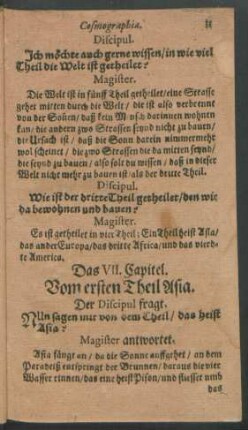 Cosmographia.
Discipul.
Ich möchte auch gerne wissen/ in wie viel
Theil die Welt ist getheilet?
Magister.
Die Welt ist in fünff Theil getheilet/ eine Strasse
gehet mitten durch die Welt/ die ist also verbrennt
von der Soñen/ daß kein Mensch darinnen wohnen
kan/ die andern zwo Strassen seynd nicht zu bauen/
die Ursach ist/ daß die Sonn darein nimmermehr
wol scheinet/ die zwo Strassen die da mitten seynd/
die seynd zu bauen/ also solt du wissen/ daß in dieser
Welt nicht mehr zu bauen ist/ als der dritte Theil.
Discipul.
Wie ist der dritte Theil getheilet/ den wir
da bewohnen und bauen?
Magister.
Es ist getheilet in vier Theil; Ein Theil heist Asia/
das ander Europa/ das dritte Africa/ und das vierd-
te America.
Das VII. Capitel.
Vom ersten Theil Asia.
Der Discipul fragt.
NUn sagen mir von dem Theil/ das heist
Asia?
Magister antwortet.
Asia fängt an/ da die Sonne auffgehet/ an dem
Paradeiß entspringt der Brunnen/ daraus die vier
Wasser rinnen/ das eine heist Pison/ und fliesset umb
das